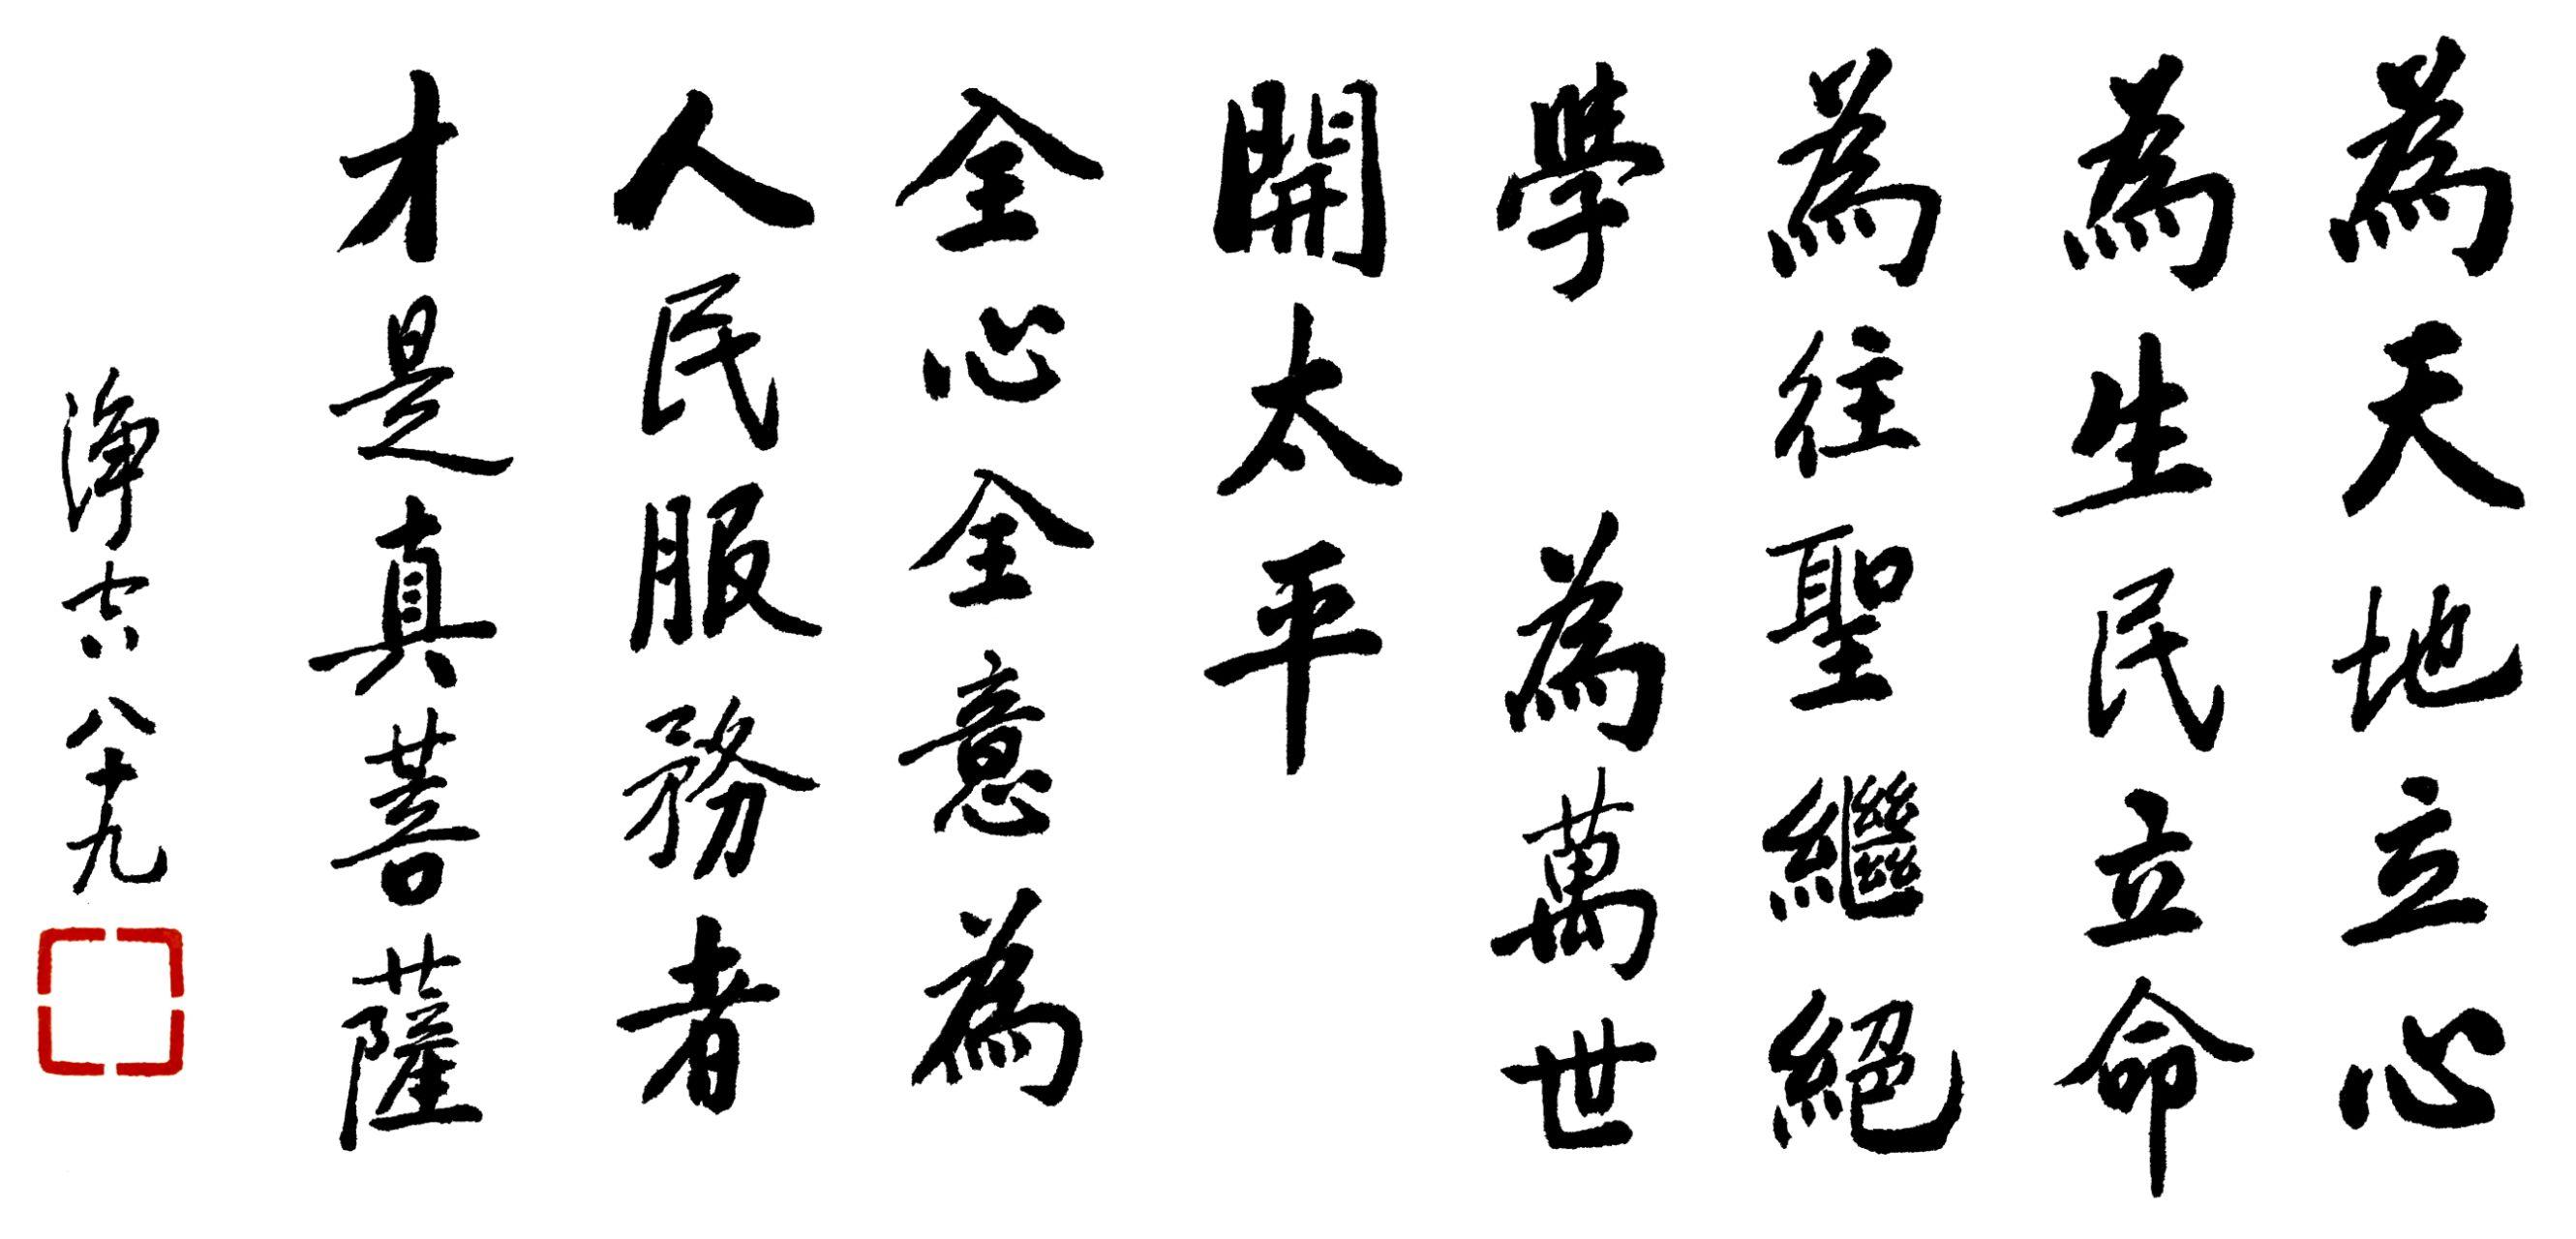 為天地立心
為生民立命
為往聖繼絕
學　為萬世
開太平
全心全意為
人民服務者
才是真菩薩
淨空八十九